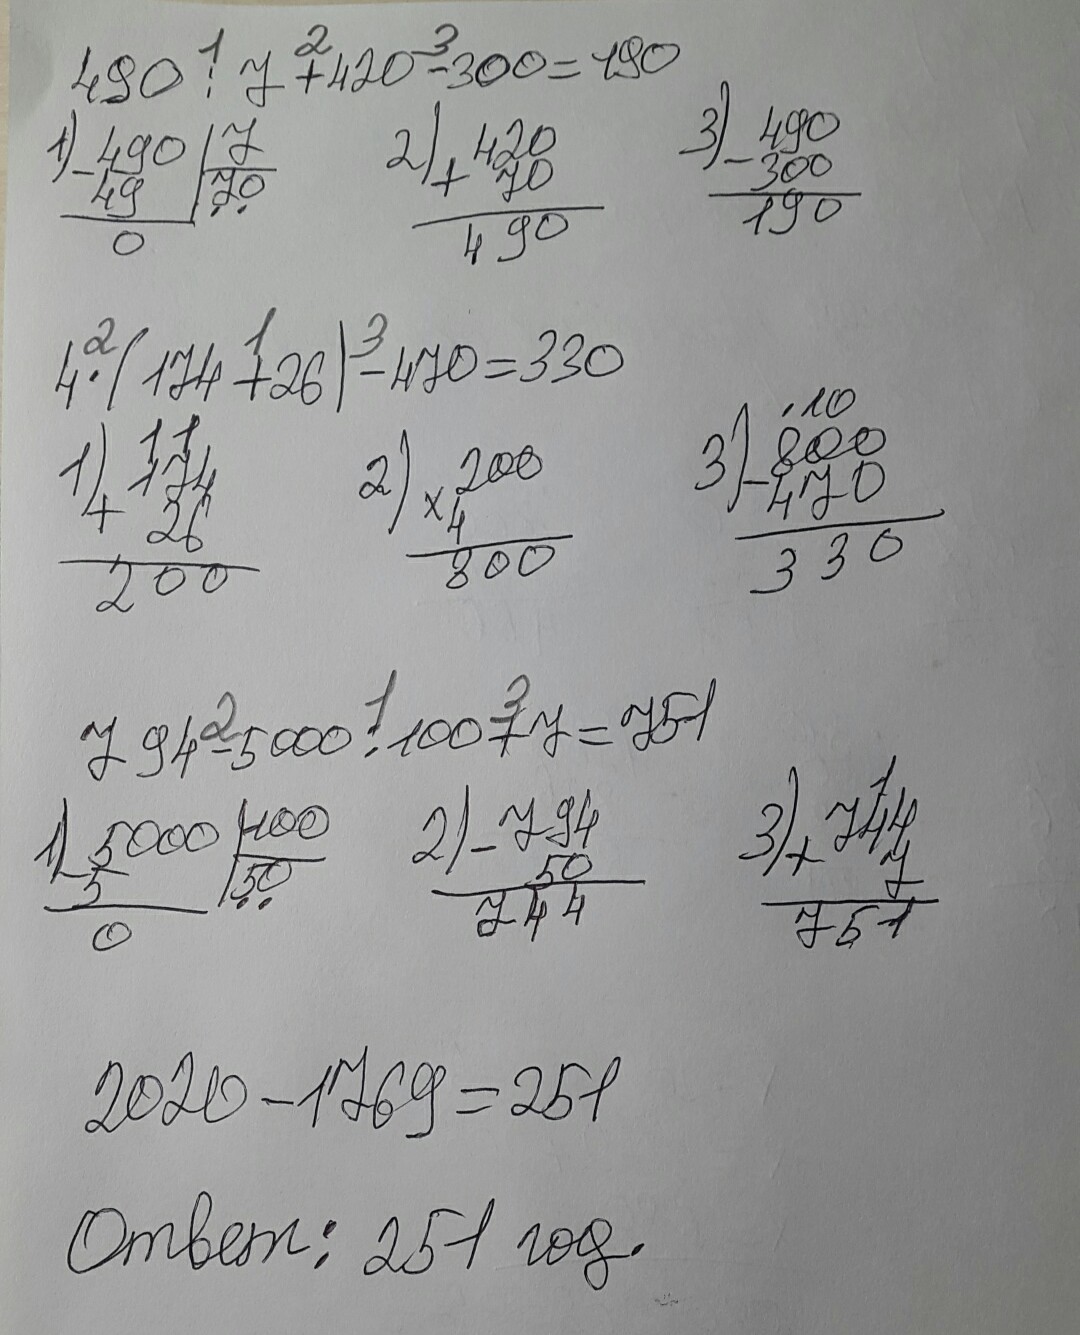 490 : 7 + 420 - 300 = 190
1 2 3
1) - 490 | 7 2) + 420 3) - 490
49 | 70 70 300
0 490 190
4 · (174 + 26) - 470 = 330
2 1 3
11 . 10
1) + 174 2) x 200 3) - 800
26 4 470
200 800 330
794 - 5000 : 100 + 7 = 751
2 1 3
1
1) - 5000 | 100 2) - 794 3) + 744
5 | 50 50 7
0 744 751
2020 - 1769 = 251
Ответ: 251 год.